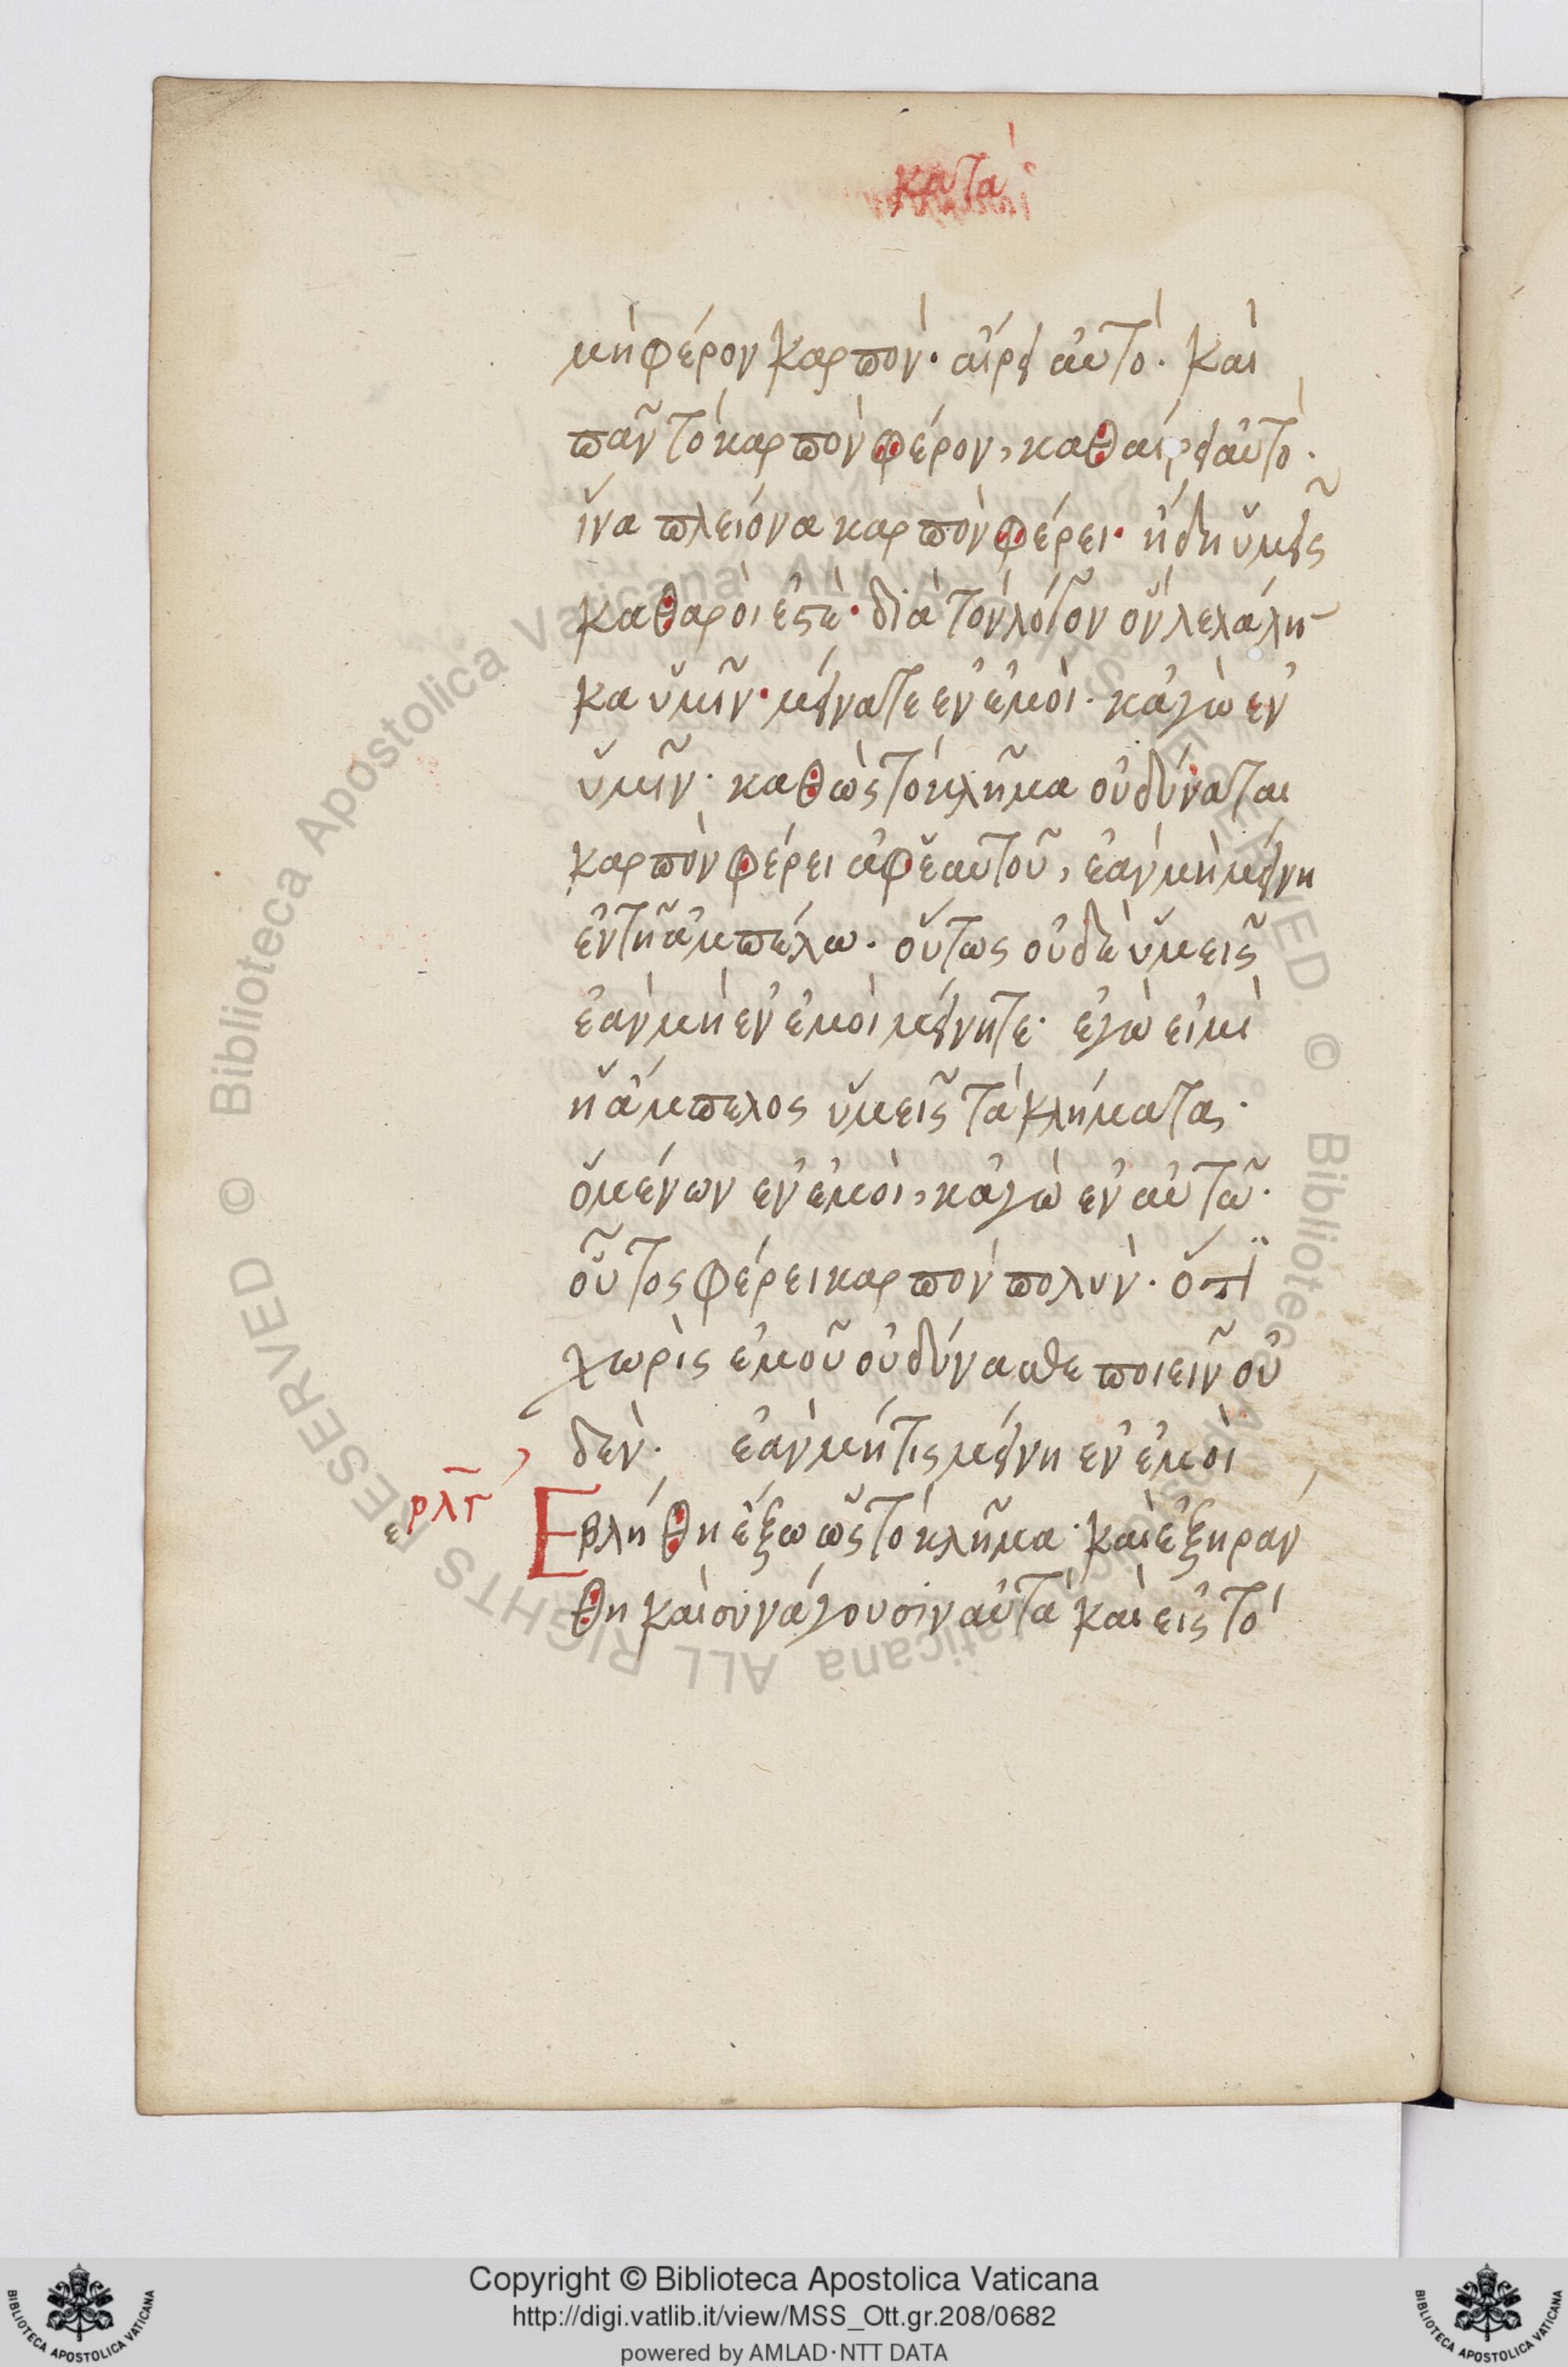 κατὰ
μὴ φέρον καρπὸν· αἴρει αὐτὸ· καὶ
πᾶν τὸ καρπὸν φέρον, καθαίρει αὐτὸ·
ἵνα πλειόνα καρπὸν φέρει· ἤδη ὑμεῖς
καθαροὶ ἐστὲ· διὰ τὸν λόγον ὃν λελάλη-
κα ὑμῖν· μείνατε ἐν ἐμοὶ· κἀγὼ ἐν
ὑμῖν· καθὼς τὸ κλῆμα οὐ δύναται
καρπὸν φέρει ἀφ ἑαυτοῦ, ἐὰν μὴ μείνη
ἐν τῆ ἀμπέλω· οὕτως οὐδὲ ὑμεῖς
ἐὰν μὴ ἐν ἐμοὶ μείνητε· ἐγὼ εἰμὶ
ἡ ἄμπελος ὑμεῖς τὰ κλήματα·
ὁ μένων ἐν ἐμοὶ, κἀγὼ ἐν αὐτῶ·
οὗτος φέρει καρπὸν πολὺν· ὅτϊ
χωρὶς ἐμοῦ οὐ δύνασθε ποιεῖν οὐ
δὲν· ἐὰν μή τις μείνη ἐν ἐμοὶ
ρλγ
ε
Εβλήθη ἔξω ὡς τὸ κλῆμα· καὶ ἐξηράν
θη καὶ συνάγουσιν αὐτὰ καὶ εἰς τὸ
© Biblioteca Apostolica Vaticana ALL RIGHTS RESERVED © Biblioteca Apostolica Vaticana ALL RIGHTS RESERVED
Copyright © Biblioteca Apostolica Vaticana
http://digi.vatlib.it/view/MSS_Ott.gr.208/0682
powered by AMLAD·NTT DATA
BIBLIOTECA APOSTOLICA VATICANA
BIBLIOTECA APOSTOLICA VATICANA